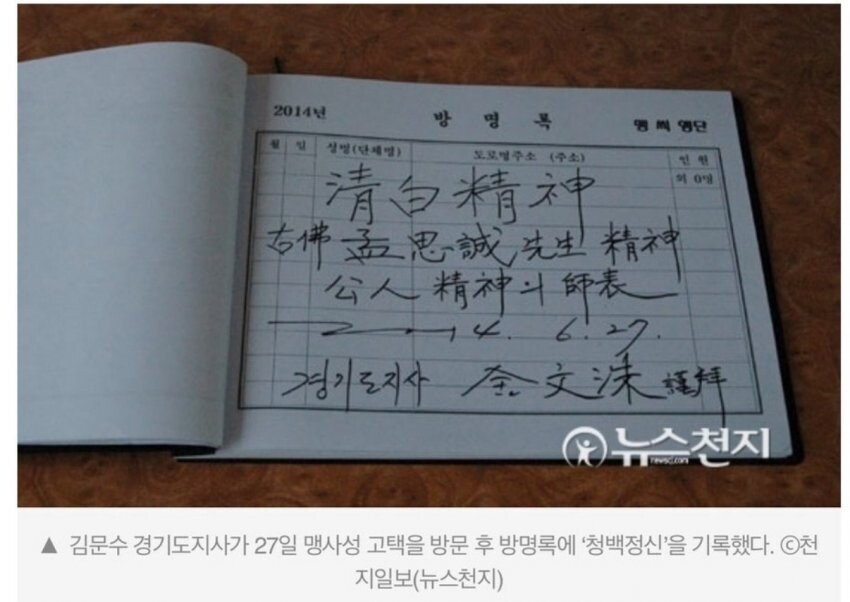 2014년 방 명 록 맹 씨 행단
월 일 성명(단체명) 도로명주소 (주소) 인 원
외 0명
清白精神
古佛 孟思誠先生 精神
公人 精神의 師表
2014. 6. 27.
경기도지사 金文洙 謹拜
뉴스천지
newscj.com
▲ 김문수 경기도지사가 27일 맹사성 고택을 방문 후 방명록에 ‘청백정신’을 기록했다. ©천
지일보(뉴스천지)